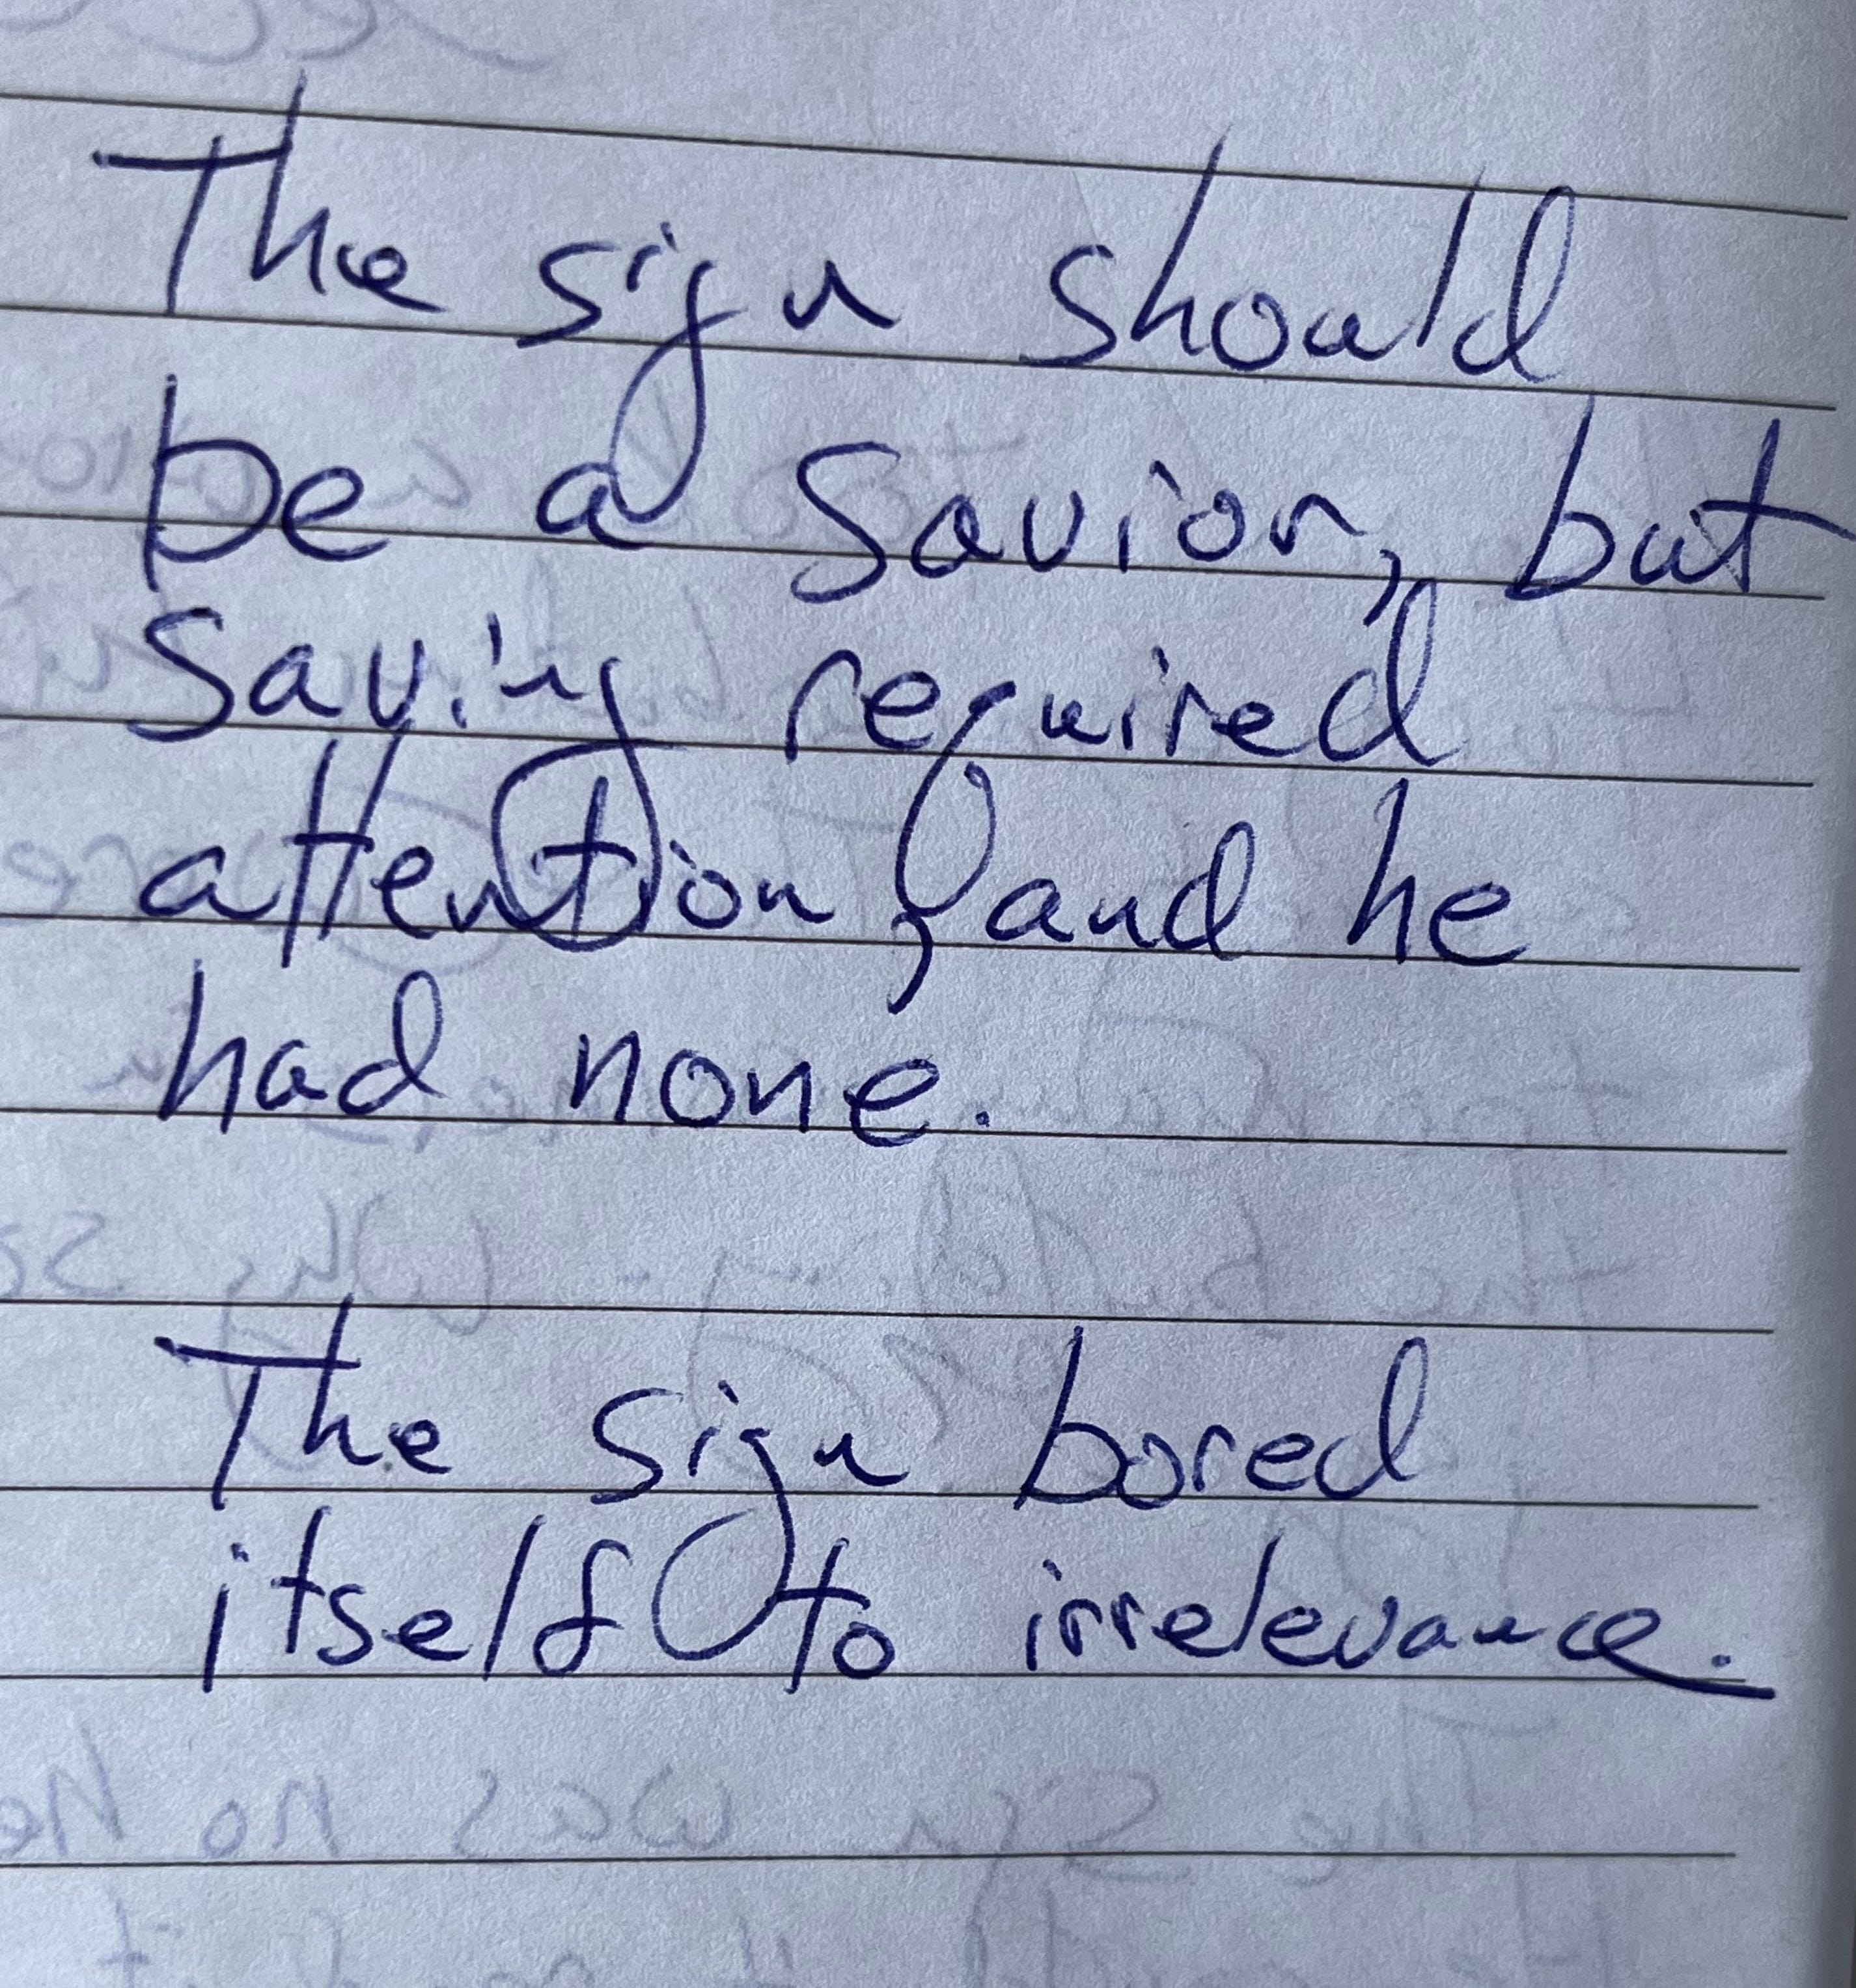 The sign should
be a savior, but
saving required
attention, and he
had none.
The sign bored
itself to irrelevance.